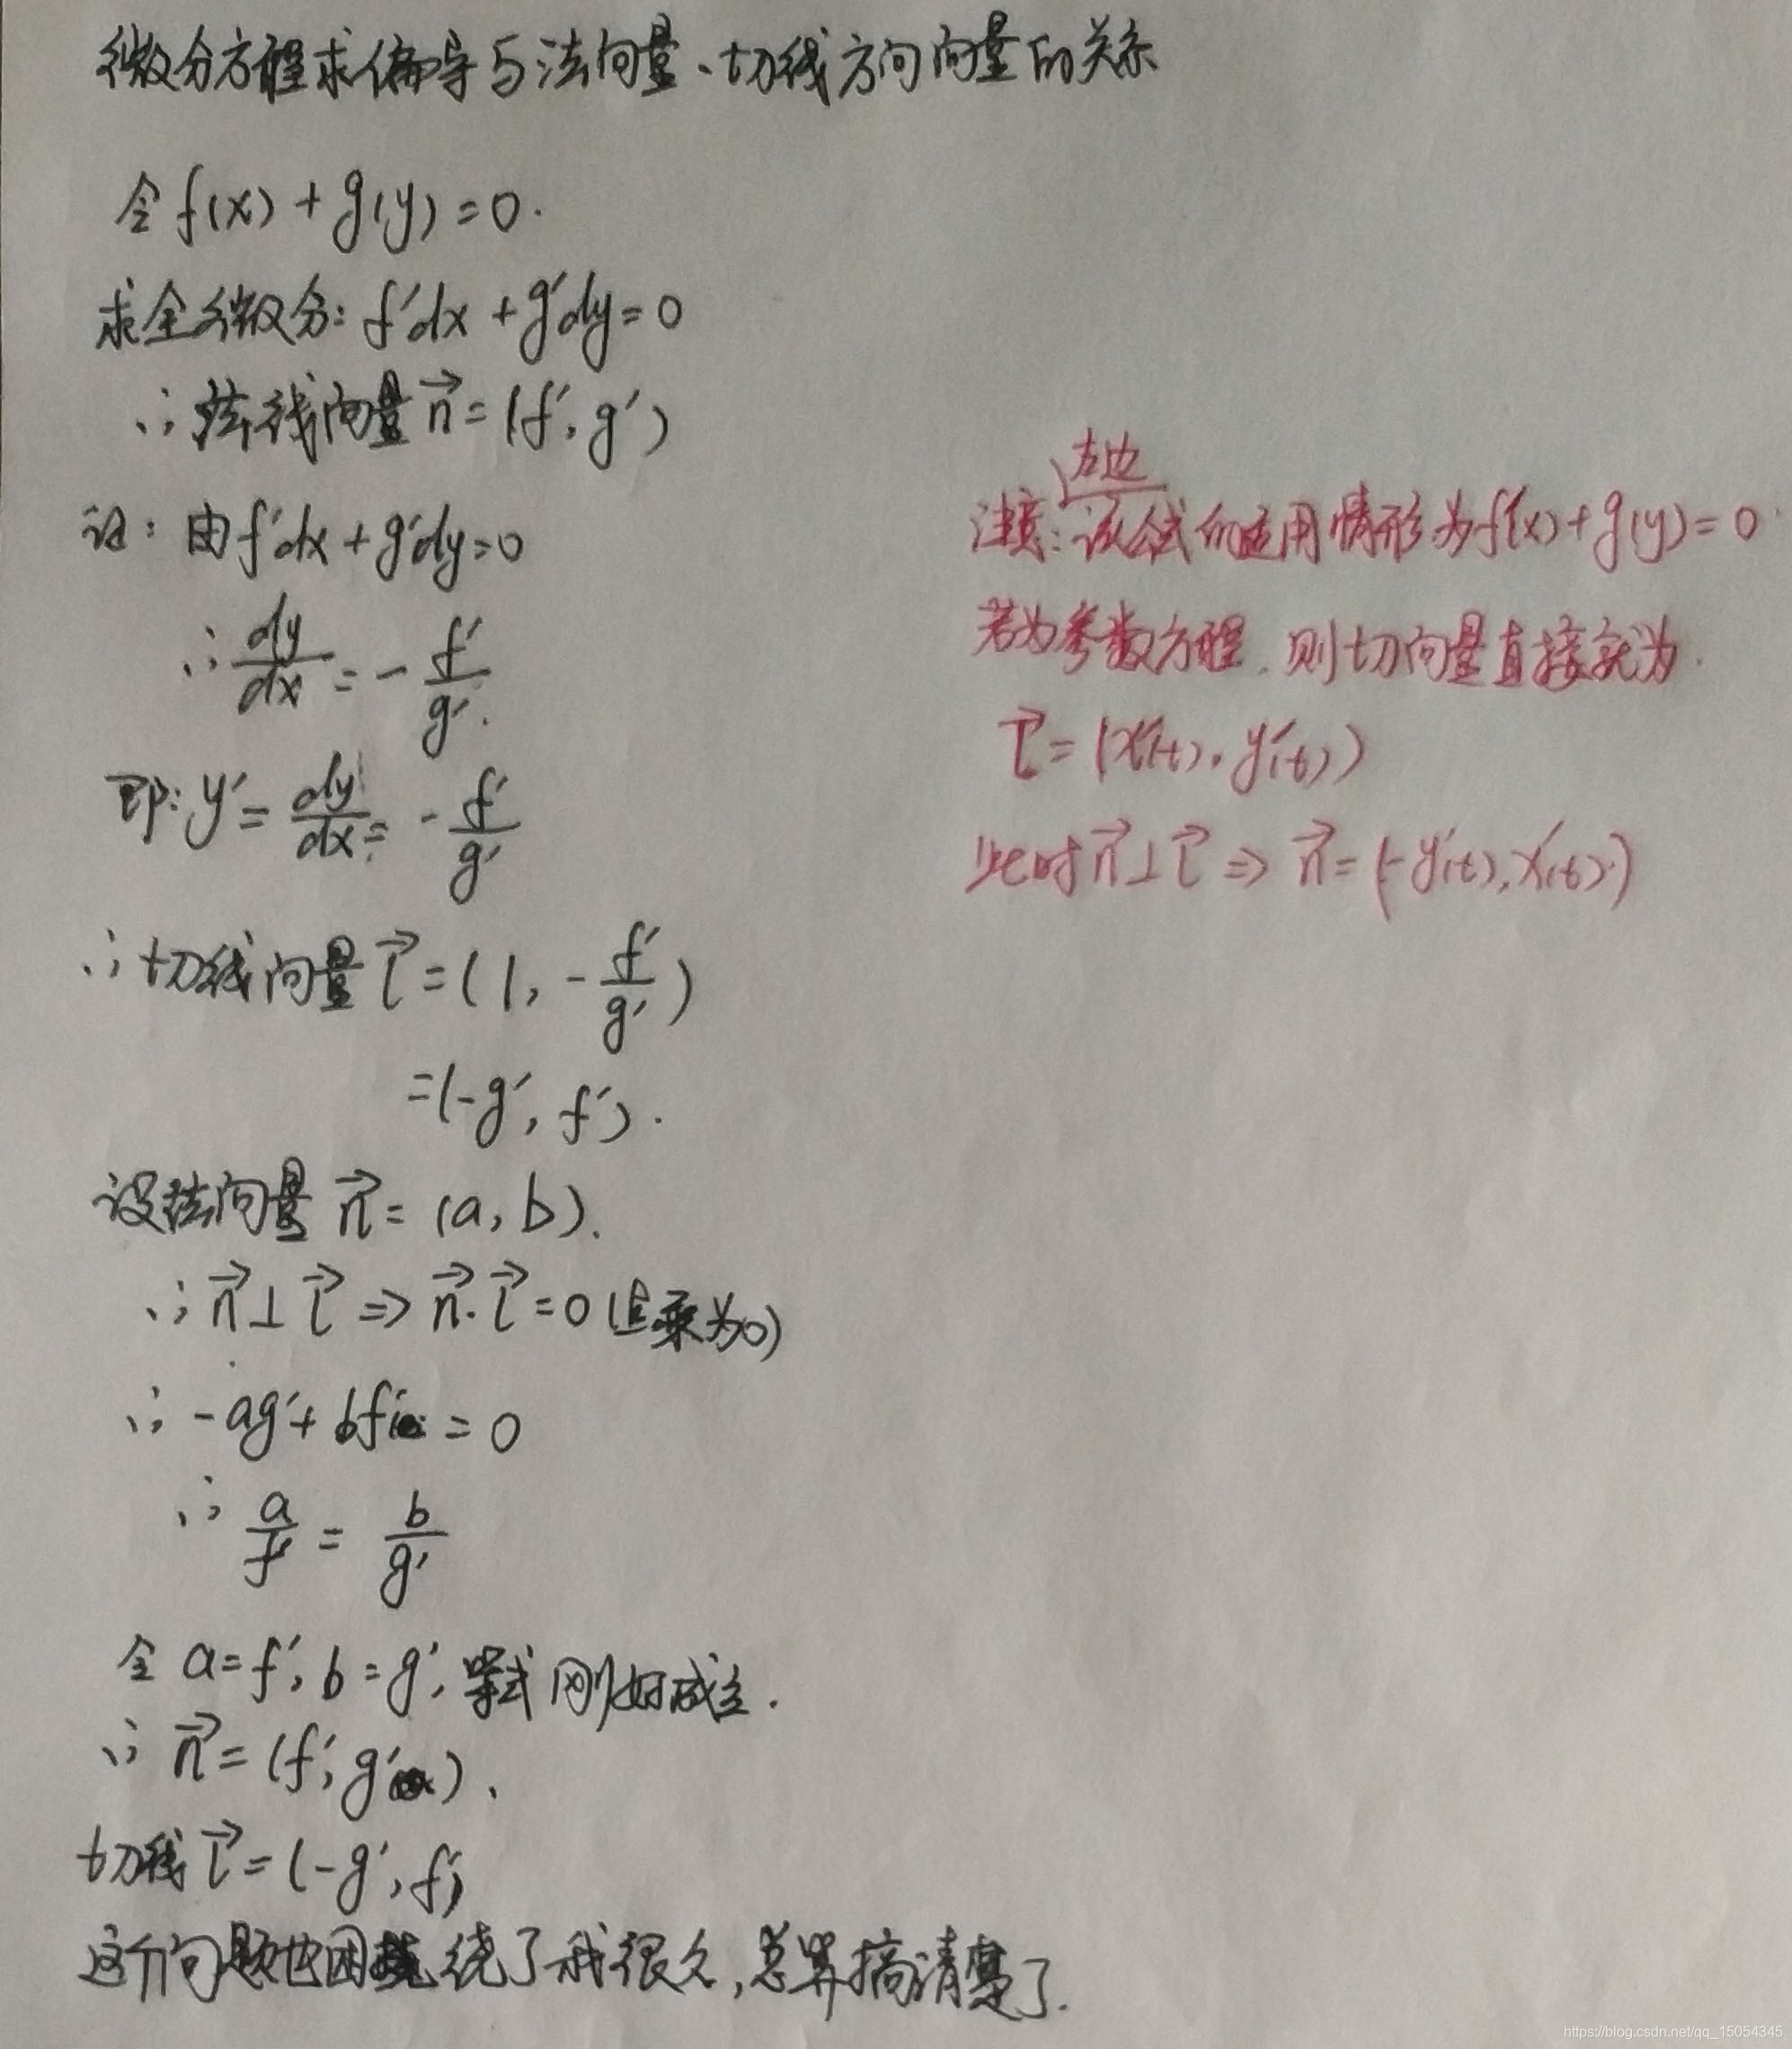 微分方程求偏导与法向量、切线方向向量的关系
令 f(x) + g(y) = 0.
求全微分: f'dx + g'dy = 0
∴ 法线向量 n⃗ = (f', g')
证: 由 f'dx + g'dy = 0
∴ dy/dx = - f'/g'.
即: y' = dy/dx = - f'/g'
∴ 切线向量 l⃗ = (1, - f'/g')
= (-g', f').
设法向量 n⃗ = (a, b).
∴ n⃗ ⊥ l⃗ ⇒ n⃗ · l⃗ = 0 (点乘为0)
∴ -ag' + bf' = 0
∴ a/f' = b/g'
令 a = f', b = g', 等式刚好成立.
∴ n⃗ = (f', g').
切线 l⃗ = (-g', f')
这个问题也困绕了我很久, 总算搞清楚了.
左边
注意: 该公式的适用情形为 f(x) + g(y) = 0
若为参数方程, 则切向量直接就为.
l⃗ = (x'(t), y'(t))
此时 n⃗ ⊥ l⃗ ⇒ n⃗ = (-y'(t), x'(t))
https://blog.csdn.net/qq_15054345